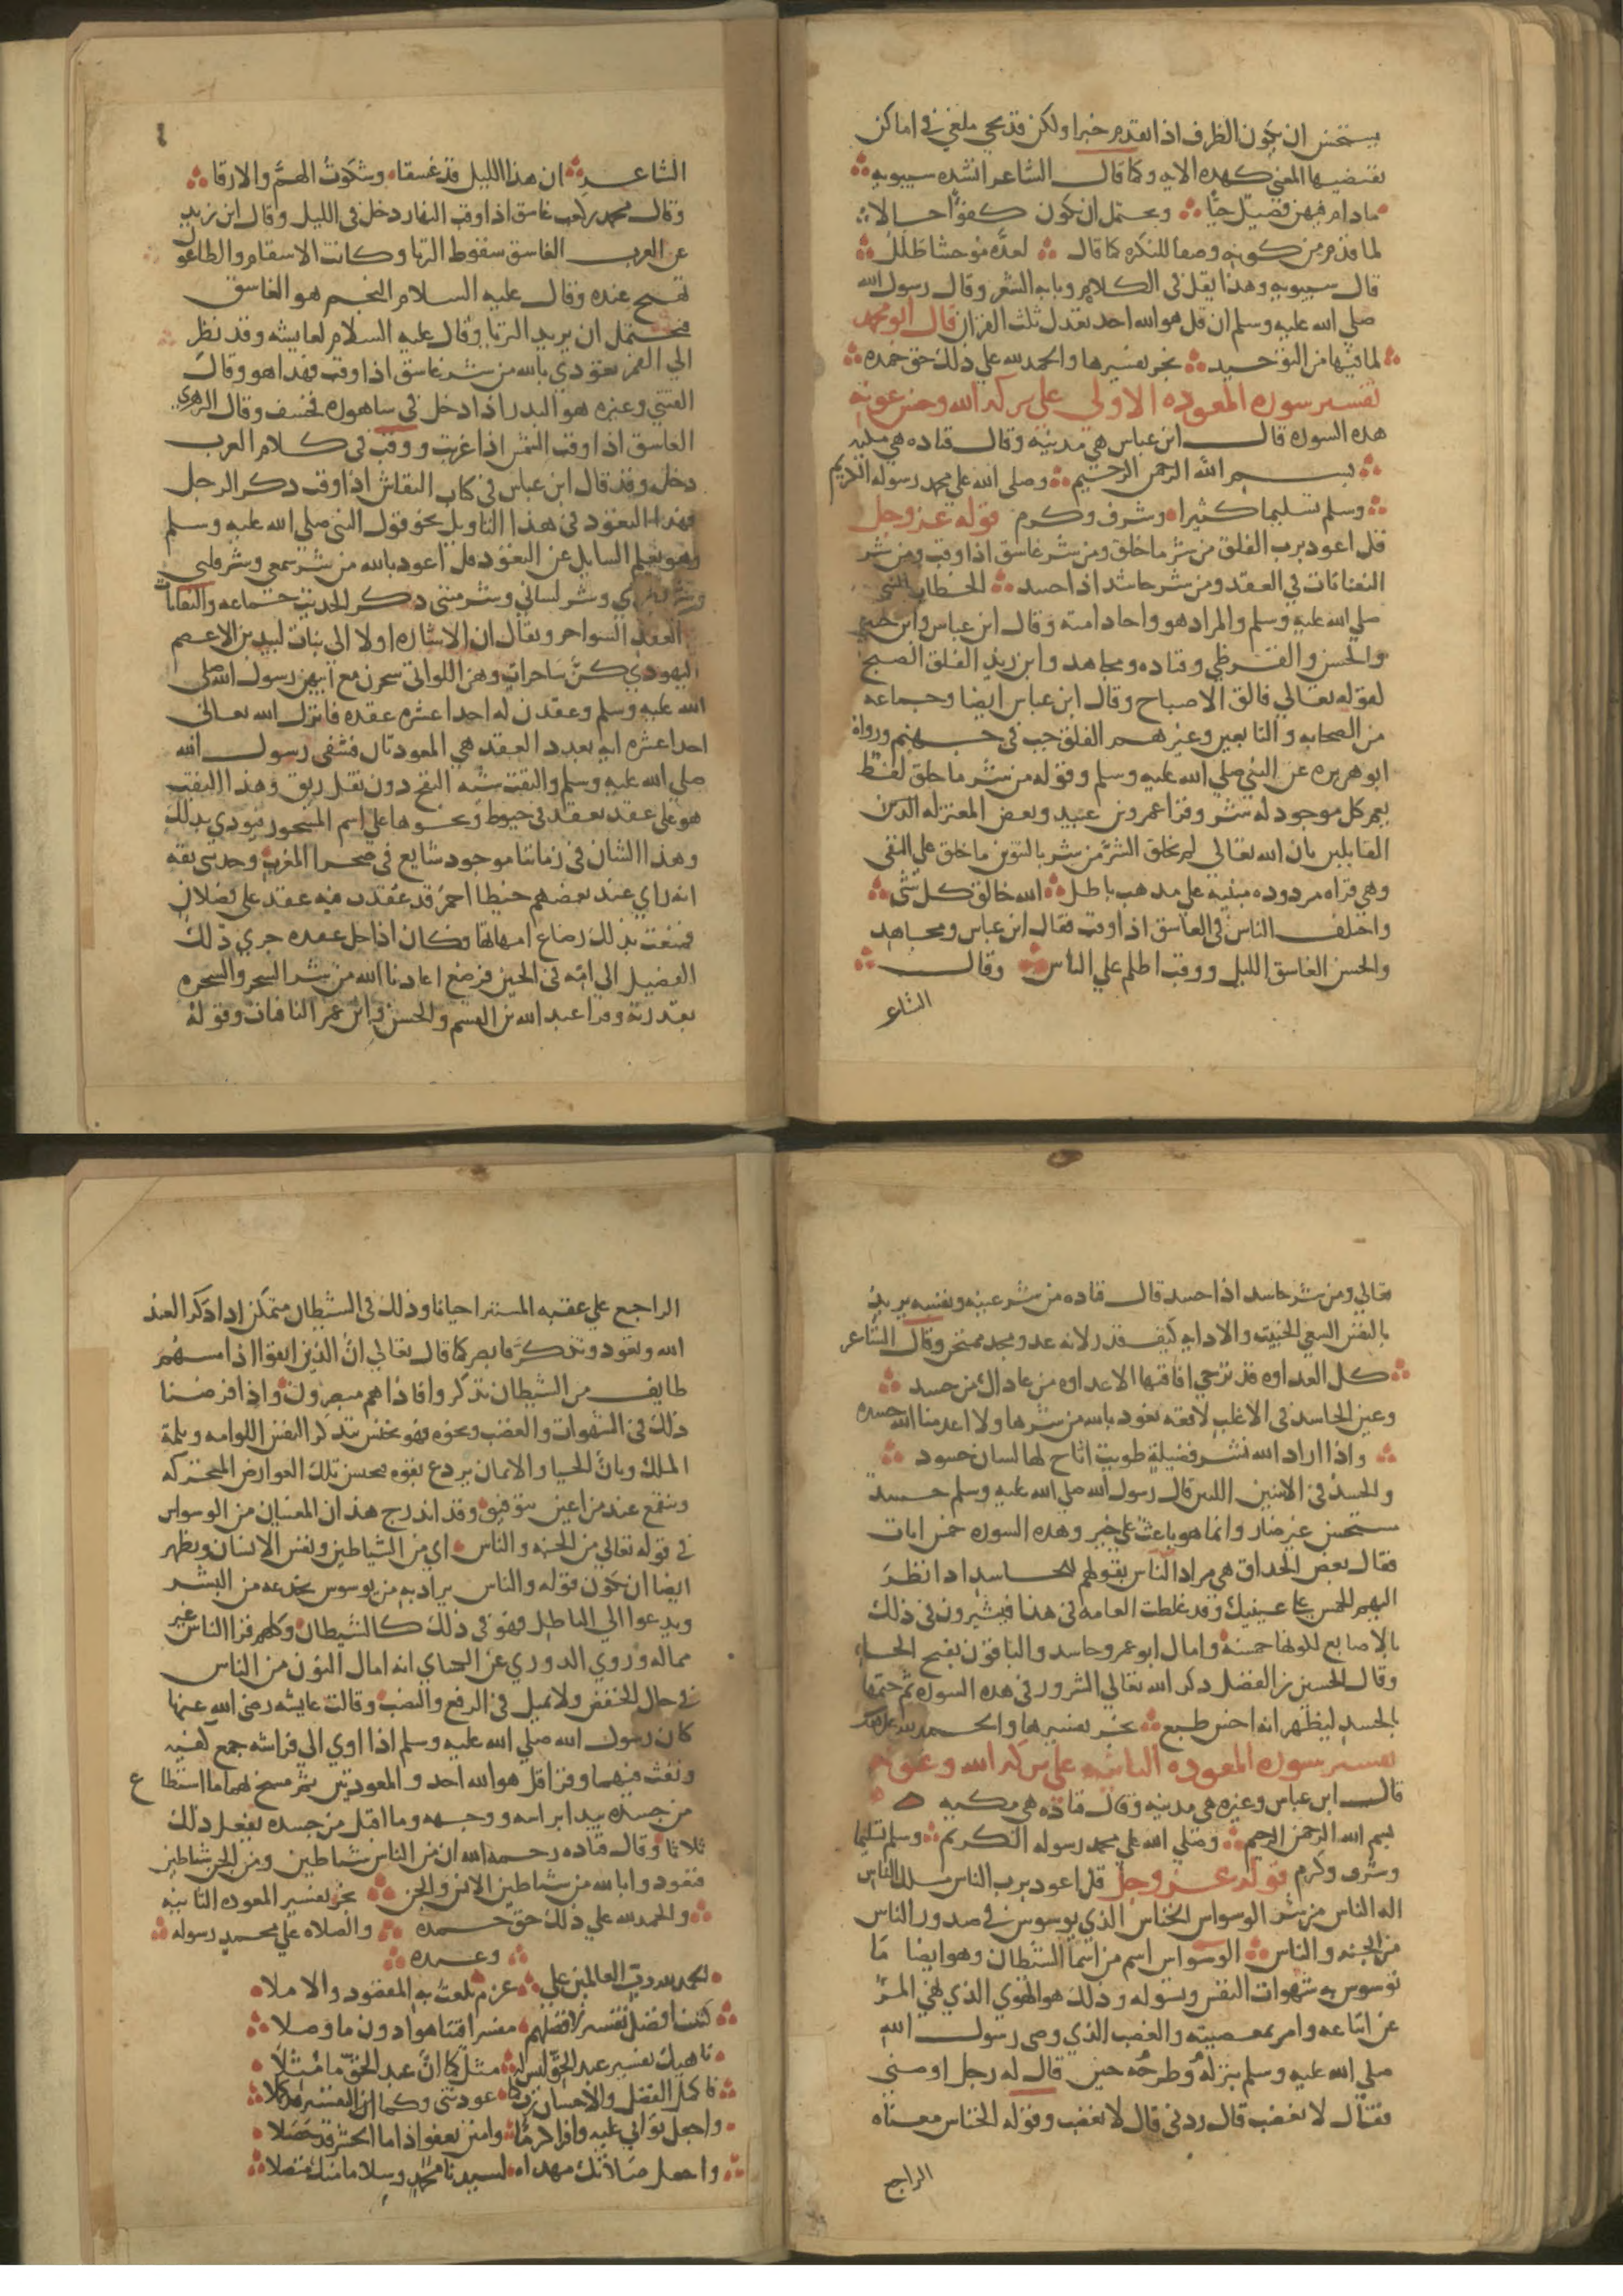 يستحسن ان يكون الظرف اذا تقدم خبرا ولكن قد يجي ملغي في اماكن
يقتضيها المعني كهذه الايه وكما قال الشاعر انشده سيبويه
مادام فيهن فصيل حيا ويحتمل ان يكون كفوا حالا
لما قدم من كونه وصفا للنكره كما قال لعزه موحشا طلل
قال سيبويه وهذا يقل في الكلام وبابه الشعر وقال رسول الله
صلي الله عليه وسلم ان قل هو الله احد تعدل ثلث القران قال ابو محمد
لما فيها من التوحيد نجز تفسيرها والحمد لله علي ذلك حق حمده
تفسير سوره المعوذه الاولي علي بركه الله وحسن عونه
هذه السوره قال ابن عباس هي مدنيه وقال قتاده هي مكيه
بسم الله الرحمن الرحيم وصلى الله علي محمد رسوله الكريم
وسلم تسليما كثيرا وشرف وكرم قوله عز وجل
قل اعوذ برب الفلق من شر ما خلق ومن شر غاسق اذا وقب ومن شر
النفاثات في العقد ومن شر حاسد اذا حسد الخطاب للنبي
صلي الله عليه وسلم والمراد هو واحاد امته وقال ابن عباس وابن جبير
والحسن والقرظي وقتاده ومجاهد وابن زيد الفلق الصبح
لقوله تعالي فالق الاصباح وقال ابن عباس ايضا وجماعه
من الصحابه والتابعين وغيرهم الفلق جب في جهنم ورواه
ابو هريره عن النبي صلي الله عليه وسلم وقوله من شر ما خلق لفظ
يعم كل موجود له شر وقرا عمرو بن عبيد وبعض المعتزله الذين
القايلين بان الله تعالي لم يخلق الشر من شر بالتنوين ما خلق علي النفي
وهي قراه مردوده مبنيه علي مذهب باطل الله خالق كل شي
واختلف الناس في الغاسق اذا وقب فقال ابن عباس ومجاهد
والحسن الغاسق الليل ووقب اظلم علي الناس وقال
الشاع
الشاعر ان هذا الليل قد غسقا وشكوت الهم والارقا
وقال محمد بن كعب غاسق اذا وقب النهار دخل في الليل وقال ابن زيد
عن العرب الغاسق سقوط الثريا وكانت الاسقام والطاعون
تهيج عنده وقال عليه السلام النجم هو الغاسق
فيحتمل ان يريد الثريا وقال عليه السلام لعايشه وقد نظر
الي القمر تعوذي بالله من شر غاسق اذا وقب فهذا هو وقال
القتبي وغيره هو البدر اذا دخل في ساهوره فخسف وقال الزهري
الغاسق اذا وقب الشمس اذا غربت ووقب في كلام العرب
دخل وقد قال ابن عباس في كتاب النقاش اذا وقب ذكر الرجل
فهذا التعوذ في هذا التاويل نحو قول النبي صلي الله عليه وسلم
وهو يعلم السايل عن التعوذ قل اعوذ بالله من شر سمعي وشر قلبي
وشر بصري وشر لساني وشر منيي ذكر الحديث جماعه والنفاثات
في العقد السواحر ويقال ان الاشاره اولا الي بنات لبيد بن الاعصم
اليهودي كن ساحرات وهن اللواتي سحرن مع ابيهن رسول الله صلي
الله عليه وسلم وعقدن له احدا عشره عقده فانزل الله تعالي
احدا عشره ايه بعدد العقد هي المعوذتان فشفى رسول الله
صلي الله عليه وسلم والنفث شبه النفخ دون تفل ريق وهذا النفث
هو علي عقد تعقد في خيوط ونحوها علي اسم المسحور فيوذي بذلك
وهذا الشان في زماننا موجود شايع في صحرا المغرب وحدثني ثقه
انه راي عند بعضهم خيطا احمر قد عقدت فيه عقد علي فصلان
فمنعت بذلك رضاع امهاتها فكان اذا حل عقده جري ذلك
الفصيل الي امه في الحين فرضع اعاذنا الله من شر السحر والسحره
بقدرته وقرا عبد الله بن القسم والحسن وابن عمر النافثات وقوله
تعالي ومن شر حاسد اذا حسد قال قتاده من شر عينه ونفسه يريد
بالنفس السعي الخبيث والاذايه كيف قدر لانه عدو مجد ممتحن وقال الشاعر
كل العداوه قد ترجي افاقتها الا عداوه من عاداك من حسد
وعين الحاسد في الاغلب لاقعه نعوذ بالله من شرها ولا اعدمنا الله حسده
واذا اراد الله نشر فضيلة طويت اتاح لها لسان حسود
والحسد في الاثنين اللتين قال رسول الله صلي الله عليه وسلم حسد
مستحسن غير ضار وانما هو باعث علي خير وهذه السوره خمس ايات
فقال بعض الحذاق هي مراد الناس بقولهم للحاسد اذا نظر
اليهم الخمس علي عينيك وقد غلطت العامه في هذا فيشيرون في ذلك
بالاصابع لكونها خمسه وامال ابو عمرو حاسد والباقون بفتح الحاء
وقال الحسين بن الفضل ذكر الله تعالي الشرور في هذه السوره ثم ختمها
بالحسد ليظهر انه اخس طبع نجز تفسيرها والحمد لله علي ذلك
تفسير سوره المعوذه الثانيه علي بركه الله وعونه
قال ابن عباس وغيره هي مدنيه وقال قتاده هي مكيه
بسم الله الرحمن الرحيم وصلي الله علي محمد رسوله الكريم وسلم تسليما
وشرف وكرم قوله عز وجل قل اعوذ برب الناس ملك الناس
اله الناس من شر الوسواس الخناس الذي يوسوس في صدور الناس
من الجنه والناس الوسواس اسم من اسما الشيطان وهو ايضا ما
توسوس به شهوات النفس وتسوله وذلك هو الهوي الذي نهي المر
عن اتباعه وامر بمعصيته والغضب الذي وصى رسول الله
صلي الله عليه وسلم بتركه وطرحه حين قال له رجل اوصني
فقال لا تغضب قال زدني قال لا تغضب وقوله الخناس معناه
الراجع
الراجع علي عقبه المستتر احيانا وذلك في الشيطان متمكن اذا ذكر العبد
الله وتعوذ وتذكر فابصر كما قال تعالي ان الذين اتقوا اذا مسهم
طايف من الشيطان تذكروا فاذا هم مبصرون واذا فرضنا
ذلك في الشهوات والغضب ونحوه فهو يخنس بتذكر النفس اللوامه وبلمة
الملك وبان الحيا والايمان يردع بقوه فتخنس تلك العوارض المتحركه
وتنقمع عند من اعين بتوفيق وقد اندرج هذان المعنيان من الوسواس
في قوله تعالي من الجنه والناس اي من الشياطين ونفس الانسان ويظهر
ايضا ان يكون قوله والناس يراد به من يوسوس بخدعه من البشر
ويدعوا الي الباطل فهو في ذلك كالشيطان وكلهم قرا الناس غير
مماله وروي الدوري عن الكساي انه امال النون من الناس
في حال الخفض ولا يميل في الرفع والنصب وقالت عايشه رضي الله عنها
كان رسول الله صلي الله عليه وسلم اذا اوي الي فراشه جمع كفيه
ونفث فيهما وقرا قل هو الله احد والمعوذتين ثم مسح بهما ما استطاع
من جسده يبدا براسه ووجهه وما اقبل من جسده يفعل ذلك
ثلاثا وقال قتاده رحمه الله ان من الناس شياطين ومن الجن شياطين
فتعوذوا بالله من شياطين الانس والجن نجز تفسير المعوذه الثانيه
والحمد لله علي ذلك حق حمده والصلاه علي محمد رسوله
وعبده
الحمد لله رب العالمين علي عزم بلغت به المقصود والاملا
كتبت افضل تفسير لافضلهم مفسرا قتناهوا دون ما وصلا
ناهيك تفسير عبد الحق ليس له مثل كما ان عبد الحق ما مثلا
عودتني وكما
واجعل ثوابي عليه وافرا كرما وامنن بعفو اذا ما الحشر قد حصلا
واجعل صلاتك مهداه لسيدنا محمد وسلاما منك متصلا